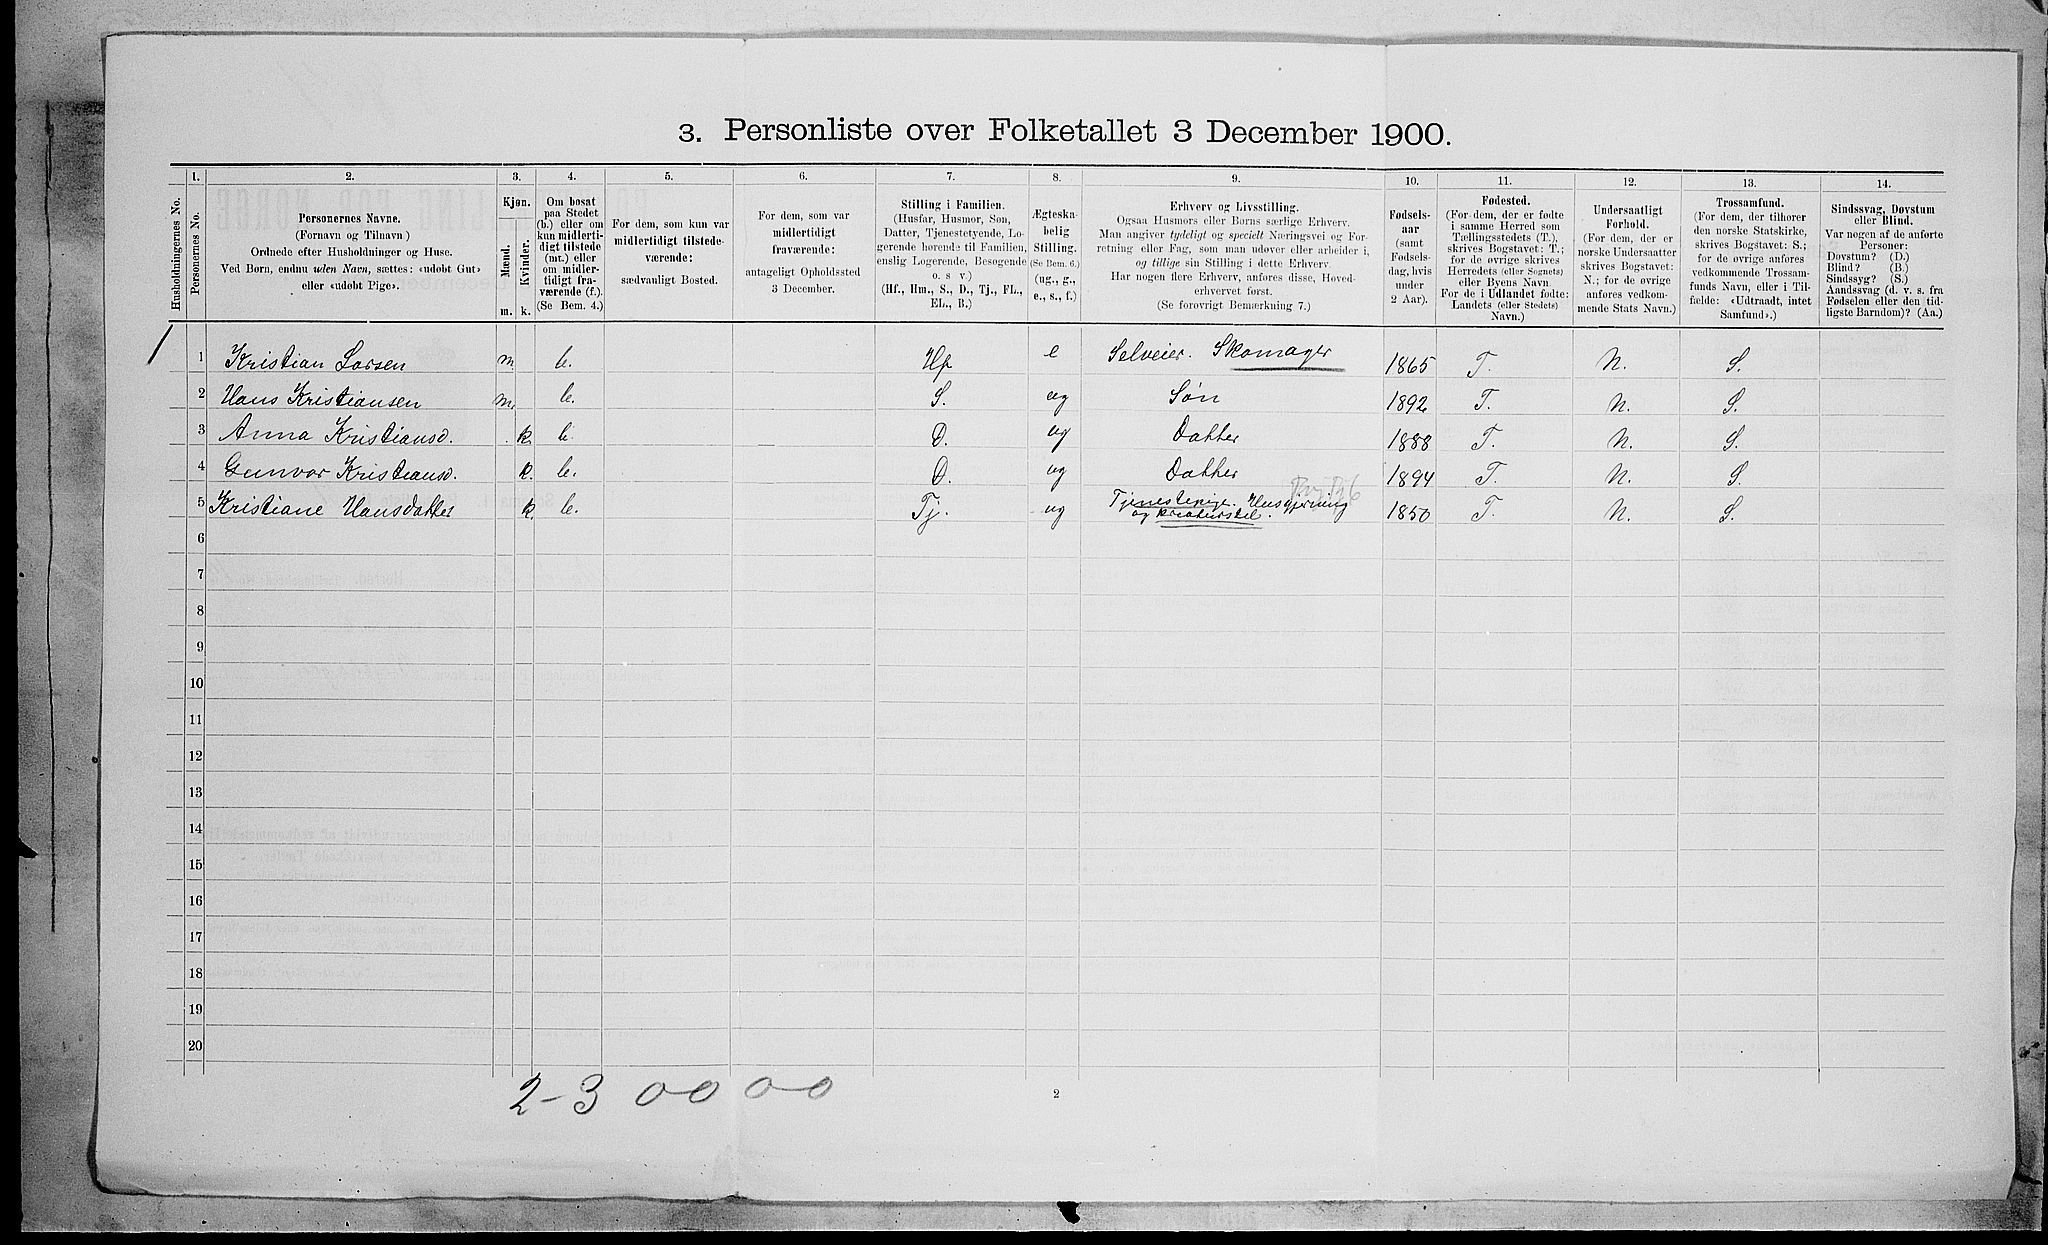 3. Personliste over Folketallet 3 December 1900.
1. 2. 3. 4. 5. 6. 7. 8. 9. 10. 11. 12. 13. 14.
Husholdningernes No.
Personernes No.
Personernes Navne.
(Fornavn og Tilnavn)
Ordnede efter Husholdninger og Huse.
Ved Børn, endnu uden Navn, sættes: «udøbt Gut»
eller «udøbt Pige».
Kjøn.
Mænd.
Kvinder.
m. k.
Om bosat
paa Stedet
(b.) eller om
kun midlerti-
digt tilstede
(mt.) eller
om midler-
tidigt fra-
værende (f.).
(Se Bem. 4.)
For dem, som kun var
midlertidigt tilstede-
værende:
sædvanligt Bosted.
For dem, som var
midlertidigt
fraværende:
antageligt Opholdssted
3 December.
Stilling i Familien.
(Husfar, Husmor, Søn,
Datter, Tjenestetyende, Lo-
gerende hørende til Familien,
enslig Logerende, Besøgende
o. s v.)
(Hf., Hm., S., D., Tj., FL.,
EL., B.)
Ægteska-
belig
Stilling.
(Se Bem. 6.)
(ug., g.,
e., s., f.)
Erhverv og Livsstilling.
Ogsaa Husmors eller Børns særlige Erhverv.
Man angiver tydeligt og specielt Næringsvei og For-
retning eller Fag, som man udøver eller arbeider i,
og tillige sin Stilling i dette Erhverv.
Har nogen flere Erhverv, anføres disse, Hoved-
erhvervet først.
(Se forøvrigt Bemærkning 7.)
Fødsels-
aar
(samt
Fødsels-
dag, hvis
under
2 Aar).
Fødested.
(For dem, der er fødte
i samme Herred som
Tællingsstedets (T.),
skrives Bogstavet: T.;
for de øvrige skrives
Herredets (eller Sognets)
eller Byens Navn.
For de i Udlandet fødte:
Landets (eller Stedets)
Navn.)
Undersaatligt
Forhold.
(For dem, der er
norske Undersaatter
skrives Bogstavet:
N.; for de øvrige
anføres vedkom-
mende Stats Navn.)
Trossamfund.
(For dem, der tilhører
den norske Statskirke,
skrives Bogstavet: S.;
for de øvrige anføres
vedkommende Trossam-
funds Navn, eller i Til-
fælde: «Udtraadt, intet
Samfund».)
Sindssvag, Døvstum
eller Blind.
Var nogen af de anførte
Personer:
Døvstum? (D.)
Blind? (B.)
Sindssyg? (S.)
Aandssvag (d. v. s. fra
Fødselen eller den tid-
ligste Barndom)? (Aa.)
1 Kristian Larsen m. b. Hf e Selveier. Skomager 1865 T. N. S.
2 Hans Kristiansen m. b. S. ug Søn 1892 T. N. S.
3 Anna Kristiansd. k. b. D. ug Datter 1888 T. N. S.
4 Gunvor Kristiansd. k. b. D. ug Datter 1894 T. N. S.
5 Kristiane Hansdatter k. b. Tj. ug Tjenestepige. Husgjerning 1850 T. N. S.
og kreaturstel.
6
7
8
9
10
11
12
13
14
15
16
17
18
19
20
2-3 00 00
2